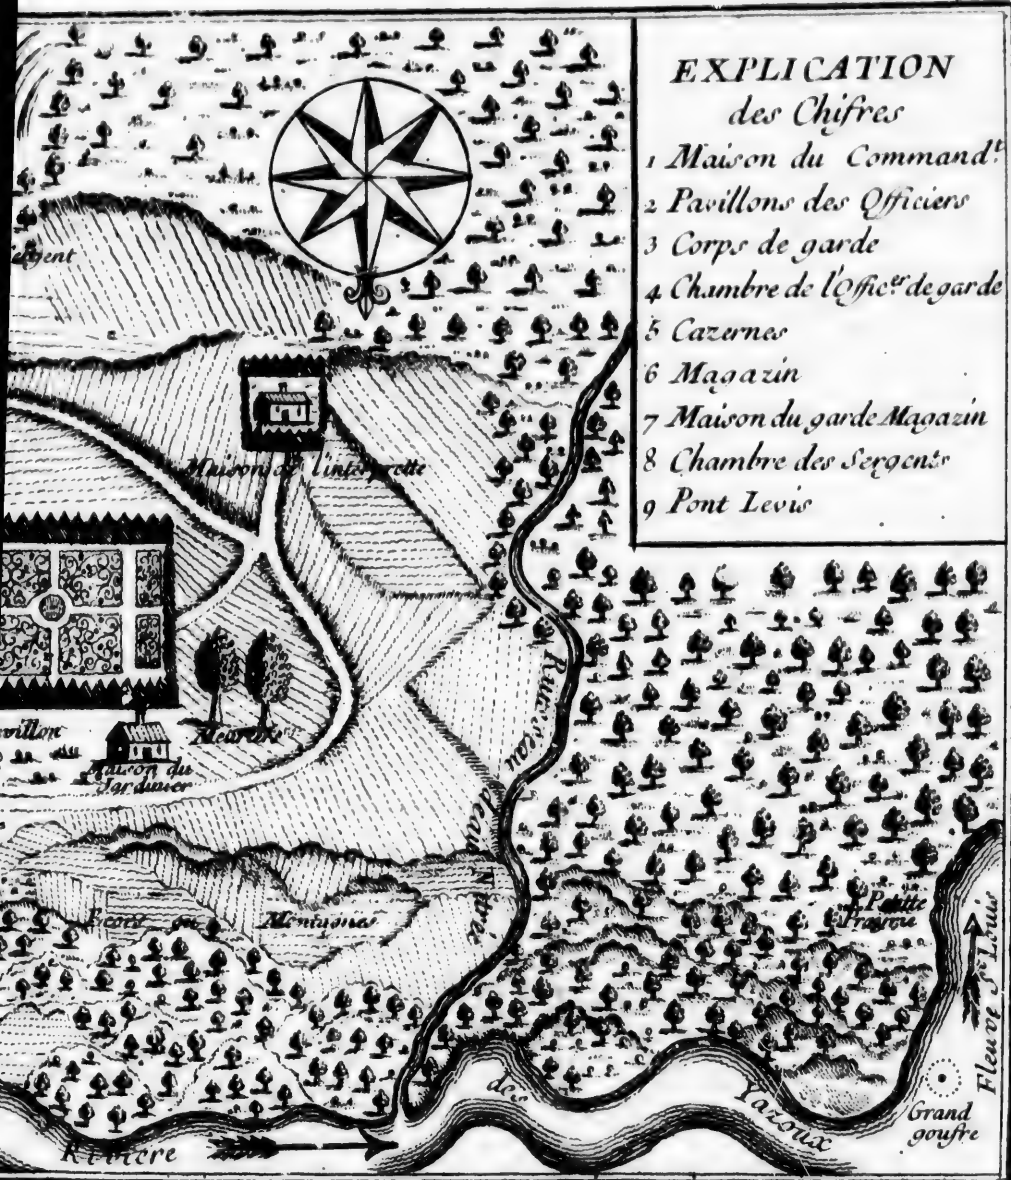 EXPLICATION
des Chifres
1 Maison du Command.t
2 Pavillons des Officiers
3 Corps de garde
4 Chambre de l'Offic.er de garde
5 Cazernes
6 Magazin
7 Maison du garde Magazin
8 Chambre des Sergents
9 Pont Levis
Maison de l'interprette
villon
Maison du
Jardinier
Meuriers
Ruisseau d'eau
Montagnes
Petitte
Fleuve St. Louis
Grand
goufre
Riviere des Yazoux